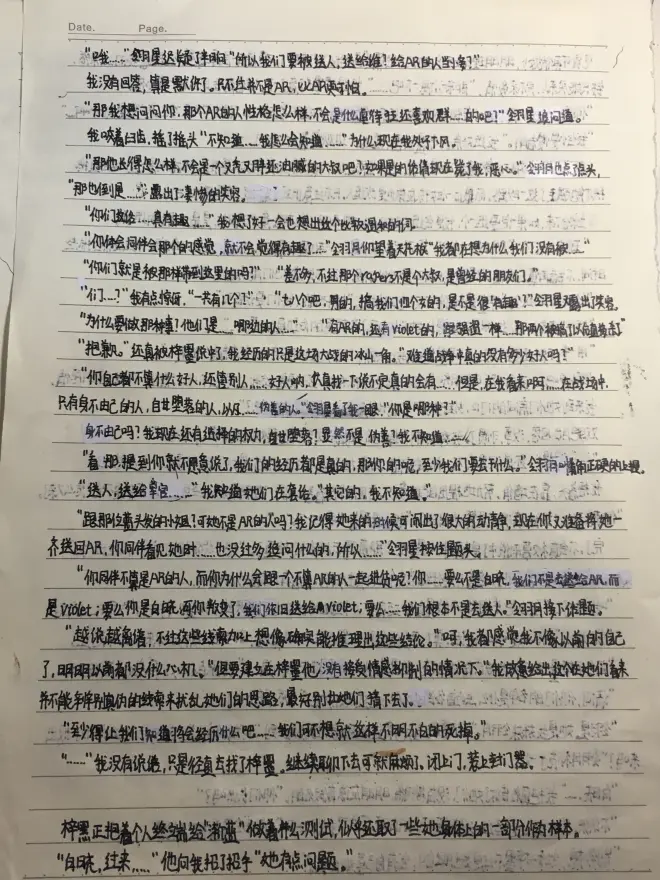 Date. Page.
"哦……"金羽星迟疑了半晌"所以我们要被送人，送给谁？给AR的人当…？"
我没有回答，真是默认了。不过并不是AR，比AR更可怕。
"那我想问问你，那个AR的人性格怎么样，不会是他虐待狂还喜欢群……的吧？"金羽星追问道。
我咬着口舌，摇了摇头"不知道……我怎么会知道……"为什么现在我处于下风。
"那他长得怎么样，不会是一个又秃又胖还油腻的大叔吧！如果是的话你现在毙了我，恶心。"金羽月也点了点头，
"那也倒是……"露出了凄惨的笑容。
"你们姐俩……真有趣……"我想了好一会也想出这个比较温和的词。
"你体会体会那个的感觉，就不会觉得有趣了……"金羽月仰望着天花板"我都在想为什么我们没有被……"
"你们就是被那样带到这里的吗？" "差不多，不过那个rogers不是个大叔，是曾经的朋友们。"
"们……？"我有点惊讶，"一共有几个？" "七八个吧，男的，搞我们四个女的，是不是很'有趣'？"金羽星露出了笑容。
"为什么要做那种事？他们是……哪边的人……" "有AR的，还有Violet的，跟强盗一样……那两个被搞了以后直接走了"
"抱歉。"还真被梓墨说中了，我经历的只是这场大战的冰山一角。"难道战争中真的没有多少好人吗？"
"你自己都不算什么好人，还管别人……好人呐，认真找一下说不定真的会有……但是，在我看来啊……在战场中，
只有身不由己的人，自甘堕落的人，以及……伪善的人。"金羽星看了我一眼"你是哪种？"
身不由己吗？我现在还有选择的权力，自甘堕落？显然不是，伪善？我不知道……
"看吧，提到你就不是急说了，我们的经历都是真的，那你的呢，至少我们要去到什么。"金羽月
"送人，送给拿官……"我知道她们在套话。"其它的，我不知道。"
"跟那位紫头发的小姐？可她不是AR的人吗？我记得她来的时候可闹出了很大的动静，现在你又准备将她一
齐送回AR，你同伴看见她时……也没过多追问什么的，所以……"金羽星按住额头。
"你同伴不算是AR的人，而你为什么会跟一个不算AR的人一起进货呢？你……要么不是白晓，我们不是去送给AR，而
是Violet；要么你是白晓，而你叛变了，我们依旧送给Violet；要么……我们根本不是去送人。"金羽月接下话题。
"越说越离谱，不过这些线索加上想像确实能推理出这些结论。"呵，我都感觉我不像以前的自己
了，明明以前都没什么心机。"但要建立在梓墨他没有接受情感抑制的情况下。"我故意给出这个在她们看来
并不能辨别真伪的线索来扰乱她们的思路，最好别让她们猜下去了。
"至少得让我们知道将会经历什么吧……我们可不想就这样不明不白的死掉。"
"……"我没有说话，只是径直去找了梓墨。继续聊下去可就麻烦了。闭上门，惹上封门器。
梓墨正抱着个人终端给"湘蓝"做着什么测试，似乎还取了一些她身体上的一部份作为样本。
"白晓，过来……"他向我招了招手"她有点问题。"